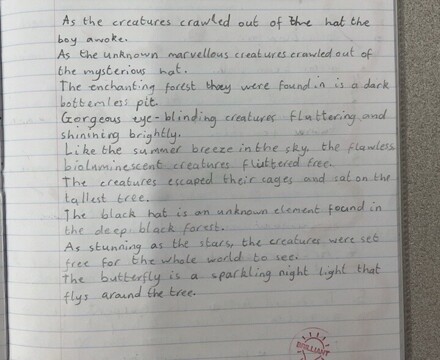 As the creatures crawled out of the hat the
boy awoke.
As the unknown marvellous creatures crawled out of
the mysterious hat.
The enchanting forest they were found in is a dark
bottemless pit.
Gorgeous eye-blinding creatures fluttering and
shinishing brightly.
Like the summer breeze in the sky, the flawless
bioluminescent creatures fluttered free.
The creatures escaped their cages and sat on the
tallest tree.
The black hat is an unknown element found in
the deep black forest.
As stunning as the stars, the creatures were set
free for the whole world to see.
The butterfly is a sparkling night light that
flys around the tree.
BRILLIANT